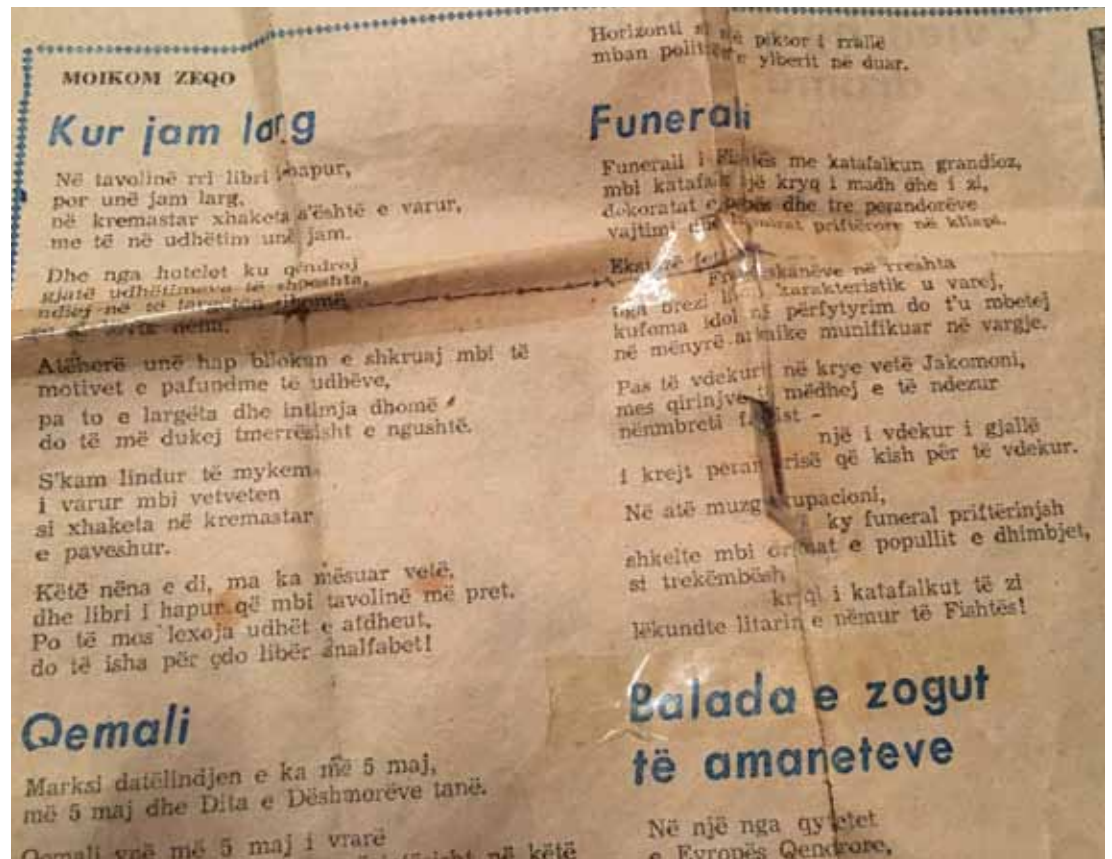 MOIKOM ZEQO
Kur jam larg
Në tavolinë rri libri i hapur,
por unë jam larg,
në kremastar xhaketa s'është e varur,
me të në udhëtim unë jam.
Dhe nga hotelet ku qëndroj
gjatë udhëtimeve të shpeshta,
ndiej në të
Atëherë unë hap bllokun e shkruaj mbi të
motivet e pafundme të udhëve,
pa to e largëta dhe intimja dhomë
do të më dukej tmerrësisht e ngushtë.
S'kam lindur të mykem
i varur mbi vetveten
si xhaketa në kremastar
e paveshur.
Këtë nëna e di, ma ka mësuar vetë,
dhe libri i hapur që mbi tavolinë më pret.
Po të mos lexoja udhët e atdheut,
do të isha për çdo libër analfabet!
Qemali
Marksi datëlindjen e ka më 5 maj,
më 5 maj dhe Dita e Dëshmorëve tanë.
Qemali ynë më 5 maj i vrarë
në këtë
Horizonti si një piktor i rrallë
mban e ylberit në duar.
Funerali
Funerali i Fishtës me katafalkun grandioz,
mbi katafalk një kryq i madh dhe i zi,
dekoratat e dhe tre perandorëve
vajtimi dhe priftërore në kllapi.
Françeskanëve në rreshta
nga brezi karakteristik u varej,
kufoma idol në përfytyrim do t'u mbetej
në mënyrë arkaike munifikuar në vargje.
Pas të vdekurit në krye vetë Jakomoni,
mes qirinjve të mëdhej e të ndezur
nënmbreti fashist -
një i vdekur i gjallë
i krejt perandorisë që kish për të vdekur.
Në atë muzg okupacioni,
ky funeral priftërinjsh
shkelte mbi e popullit e dhimbjet,
si trekëmbësh
kryqi i katafalkut të zi
lëkundte litarin e nëmur të Fishtës!
Balada e zogut
të amaneteve
Në një nga qytetet
e Evropës Qendrore,